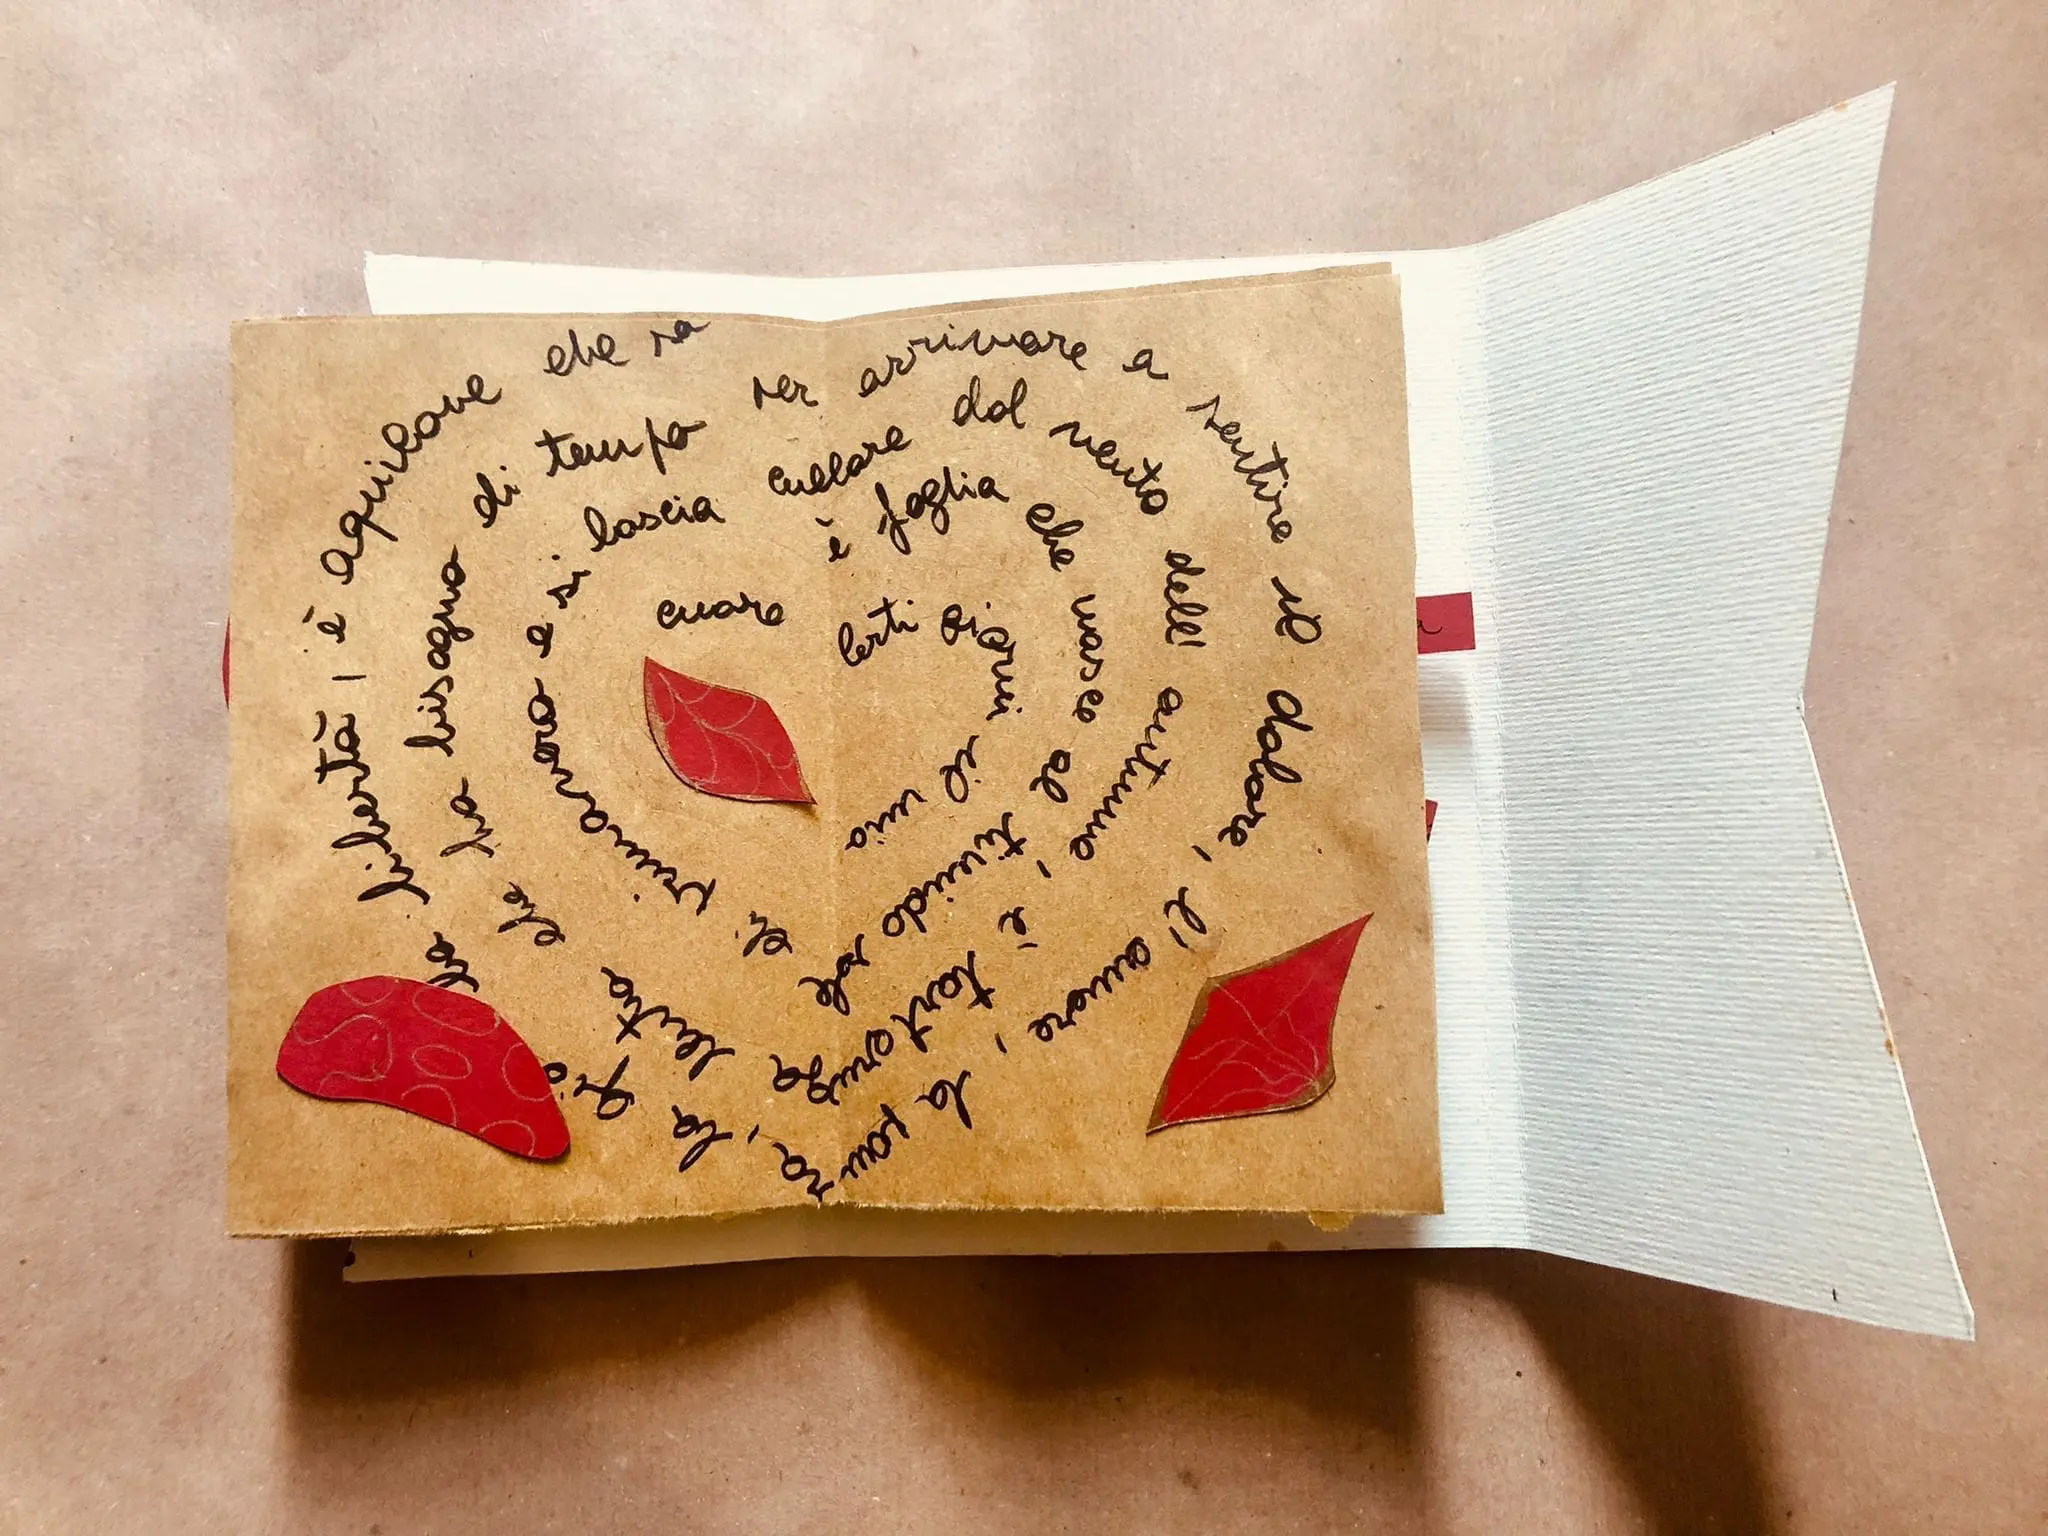 certi giorni il mio cuore
è foglia che nasce al timido sole di primavera e si lascia cullare dal vento dell'autunno,
è tartaruga, lenta che ha bisogno di tempo per arrivare a sentire il dolore, l'amore, la paura, la gio la libertà, è aquilone che sa